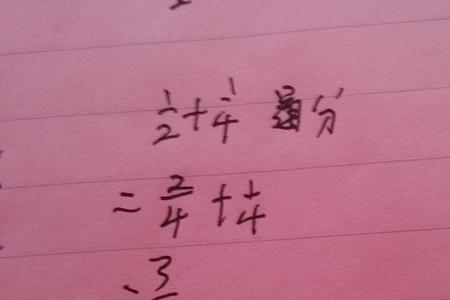 1/2 + 1/4 通分
= 2/4 + 1/4
3